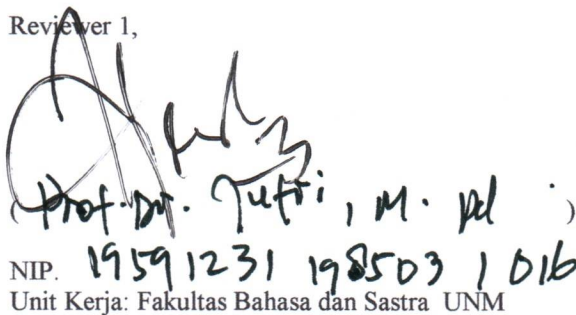 Reviewer 1,
(Prof. Dr. Jufri, M. Pd )
NIP. 19591231 198503 1 016
Unit Kerja: Fakultas Bahasa dan Sastra UNM